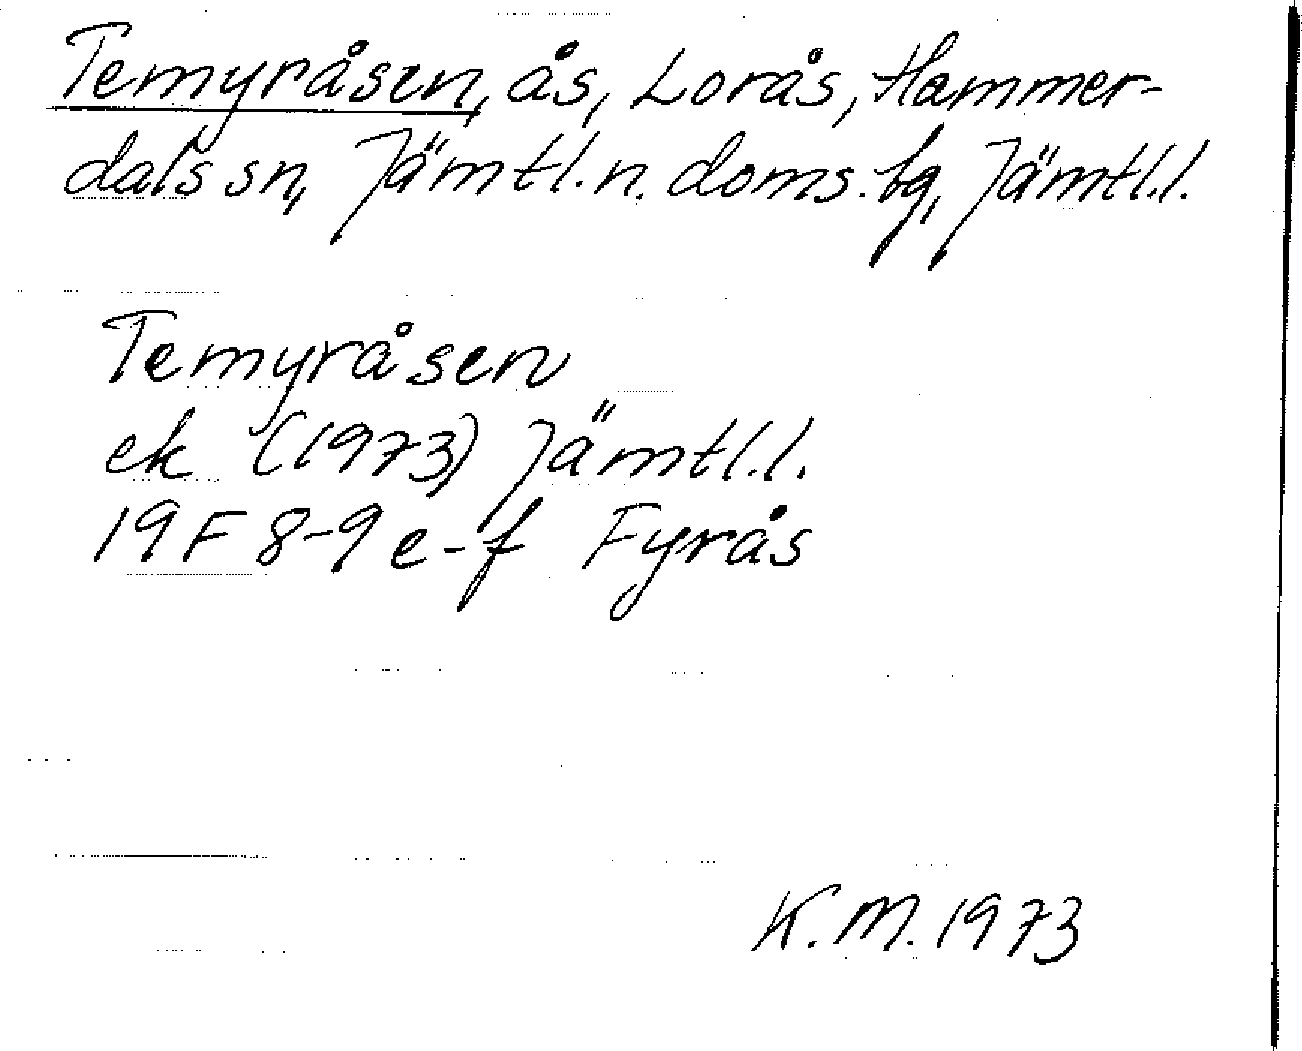 Temyråsen, ås, Lorås, Hammer-
dals sn, Jämtl.n. doms.bg, Jämtl.l.
Temyråsen
ek (1973) Jämtl.l.
19F 8-9 e-f Fyrås
K.M. 1973